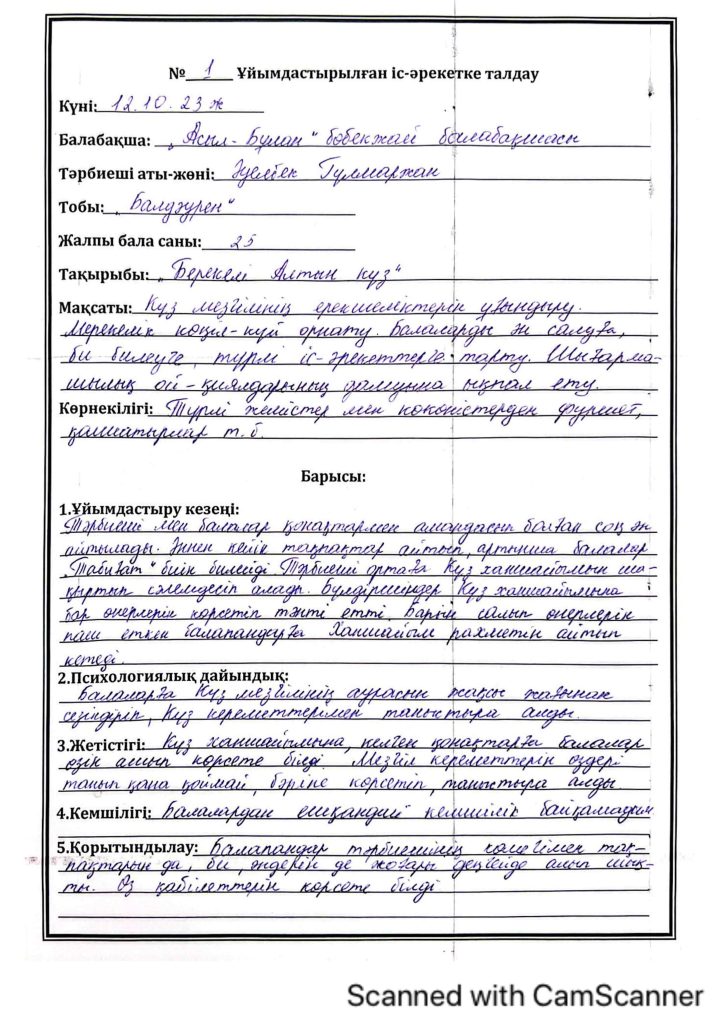 № 1 Ұйымдастырылған іс-әрекетке талдау
Күні: 12.10.23ж
Балабақша: „Асыл-Бұлан" бөбекжай балабақшасы
Тәрбиеші аты-жөні: Әуелбек Гүлмаржан
Тобы: „Балдәурен"
Жалпы бала саны: 25
Тақырыбы: „Берекелі Алтын күз"
Мақсаты: Күз мезгілінің ерекшеліктерін ұғындыру.
Мерекелік көңіл-күй орнату. Балаларды ән салуға,
би билеуге, түрлі іс-әрекеттерге тарту. Шығарма-
шылық ой-қиялдарының дамуына ықпал ету.
Көрнекілігі: Түрлі жемістер мен көкөністерден фуршет,
қолшатырлар т.б.
Барысы:
1.Ұйымдастыру кезеңі:
Тәрбиеші мен балалар қонақтармен амандасып болған соң ән
айтылады. Әннен кейін тақпақтар айтып, артынша балалар
„Табиғат" биін билейді. Тәрбиеші ортаға Күз ханшайымын ша-
қыртып сәлемдесіп алады. Бүлдіршіндер Күз ханшайымына
бар өнерлерін көрсетіп тәнті етті. Барын салып өнерлерін
паш еткен балапандарға Ханшайым рахметін айтып
кетеді.
2.Психологиялық дайындық:
Балаларға Күз мезгілінің аурасын жақсы жағынан
сезіндіріп, Күз кереметтерімен таныстыра алды.
3.Жетістігі: Күз ханшайымына, келген қонақтарға балалар
өзін ашып көрсете білді. Мезгіл кереметтерін өздері
танып қана қоймай, бәріне көрсетіп, таныстыра алды.
4.Кемшілігі: Балалардан ешқандай кемшілік байқамадым.
5.Қорытындылау: Балапандар тәрбиешінің көмегімен тақ-
пақтарын да, би, әндерін де жоғары деңгейде алып шық-
ты. Өз қабілеттерін көрсете білді
Scanned with CamScanner